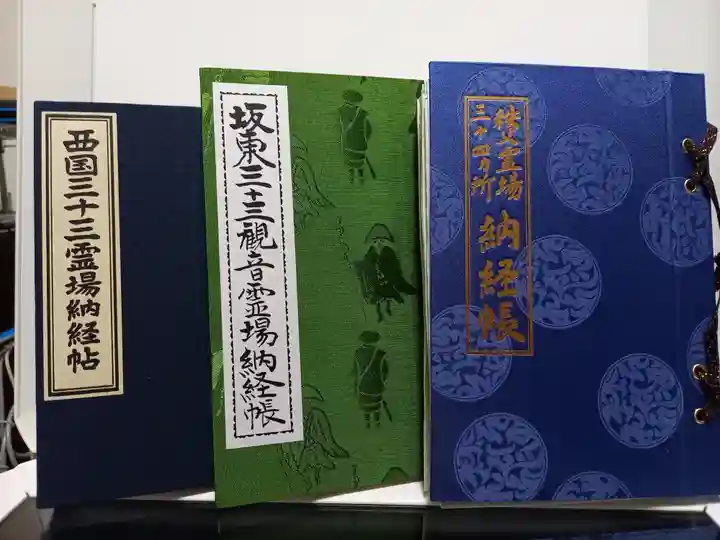 西国三十三霊場納経帖
坂東三十三観音霊場納経帳
秩父霊場
三十四カ所
納経帳